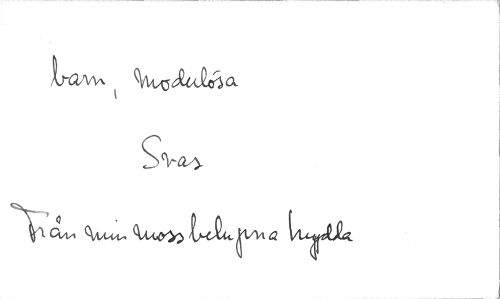 barn, moderlösa
Svas
Från min mossbelupna hydda